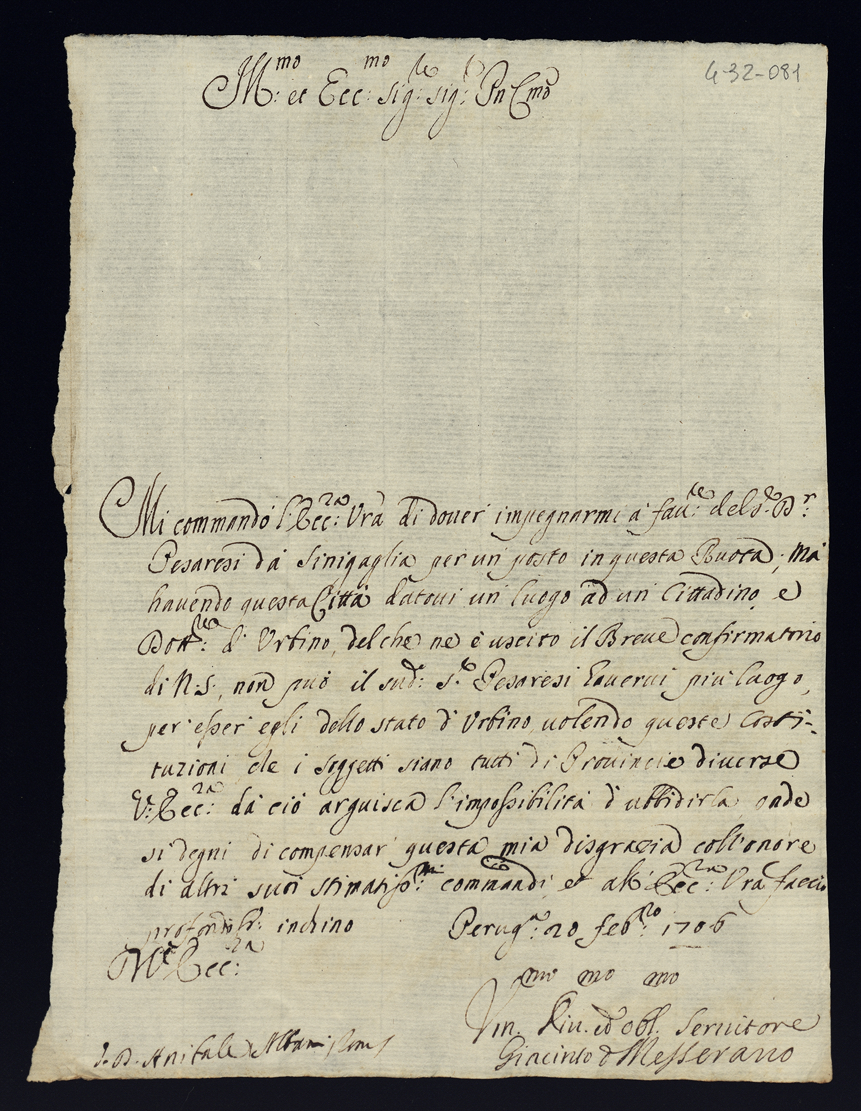 4-32-081
Ill:mo et Ecc:mo Sig:re Sig:r Pn Cmo
Mi commandò l'Ecc:za Vra di dover' impegnarmi à fau:re del S:r D:r
Pesaresi da Sinigaglia per un' posto in questa Ruota; mà
hauendo questa Città datoui un' luogo ad un' Cittadino, e
Dott:re d'Urbino, del che ne è uscito il Breue confirmatorio
di N.S., non può il sud:o S:r Pesaresi hauerui più luogo,
per esser egli dello stato d'Urbino, uolendo queste Costi-
tuzioni che i soggetti siano tutti di Prouincie diuerse
V:Ecc:za da ciò arguisca l'impossibilità d'ubbidirla onde
si degni di compensar' questa mia disgrazia coll'onore
di altri suoi stimatiss:mi commandi, et all'Ecc:za Vra faccio
profondiss:o inchino Perug:a 20 feb:ro 1706
V:Ecc:za
S. D. Anibale Albani Roma
mo mo mo
Um. Diu. ed obl. Seruitore
Giacinto d Messerano